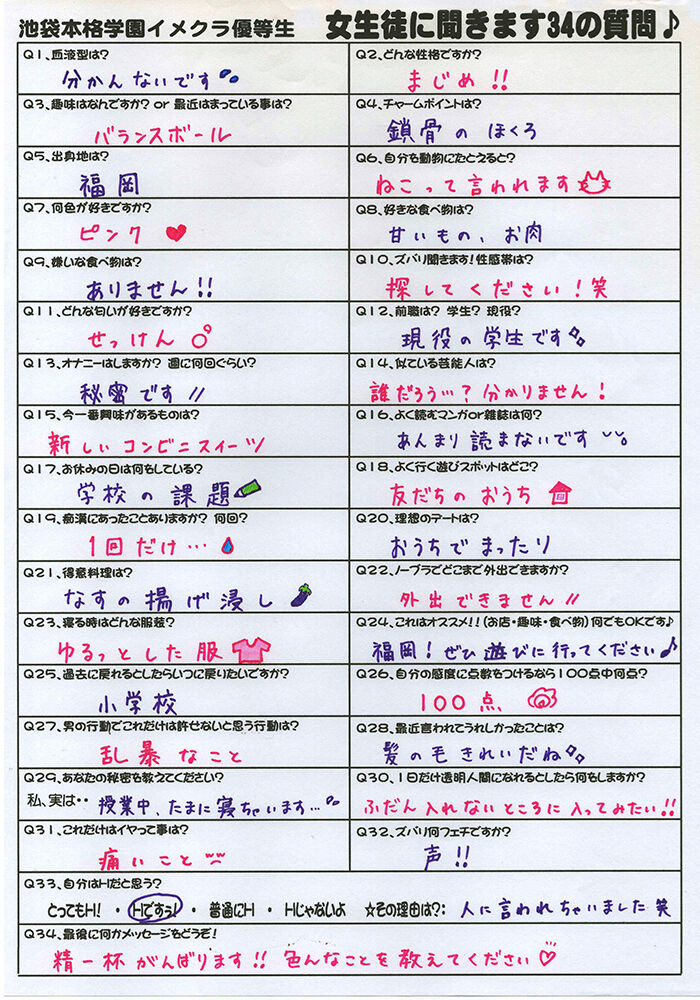 池袋本格学園イメクラ優等生 女生徒に聞きます34の質問♪
Q1、血液型は?
分かんないです
Q2、どんな性格ですか?
まじめ!!
Q3、趣味はなんですか? or 最近はまっている事は?
バランスボール
Q4、チャームポイントは?
鎖骨のほくろ
Q5、出身地は?
福岡
Q6、自分を動物にたとえると?
ねこって言われます
Q7、何色が好きですか?
ピンク ♥
Q8、好きな食べ物は?
甘いもの、お肉
Q9、嫌いな食べ物は?
ありません!!
Q10、ズバリ聞きます!性感帯は?
探してください!笑
Q11、どんな匂いが好きですか?
せっけん
Q12、前職は? 学生? 現役?
現役の学生です
Q13、オナニーはしますか? 週に何回ぐらい?
秘密です//
Q14、似ている芸能人は?
誰だろう…?分かりません!
Q15、今一番興味があるものは?
新しいコンビニスイーツ
Q16、よく読むマンガor雑誌は何?
あんまり読まないです
Q17、お休みの日は何をしている?
学校の課題
Q18、よく行く遊びスポットはどこ?
友だちのおうち
Q19、痴漢にあったことありますか? 何回?
1回だけ…
Q20、理想のデートは?
おうちでまったり
Q21、得意料理は?
なすの揚げ浸し
Q22、ノーブラでどこまで外出できますか?
外出できません//
Q23、寝る時はどんな服装?
ゆるっとした服
Q24、これはオススメ!!(お店・趣味・食べ物)何でもOKです♪
福岡!ぜひ遊びに行ってください♪
Q25、過去に戻れるとしたらいつに戻りたいですか?
小学校
Q26、自分の感度に点数をつけるなら100点中何点?
100点
Q27、男の行動でこれだけは許せないと思う行動は?
乱暴なこと
Q28、最近言われてうれしかったことは?
髪の毛きれいだね
Q29、あなたの秘密を教えてください?
私、実は・・ 授業中、たまに寝ちゃいます…
Q30、1日だけ透明人間になれるとしたら何をしますか?
ふだん入れないところに入ってみたい!!
Q31、これだけはイヤって事は?
痛いこと
Q32、ズバリ何フェチですか?
声!!
Q33、自分はHだと思う?
とってもH! ・ Hですぅ! ・ 普通にH ・ Hじゃないよ ☆その理由は?: 人に言われちゃいました笑
Q34、最後に何かメッセージをどうぞ!
精一杯がんばります!!色んなことを教えてください♡